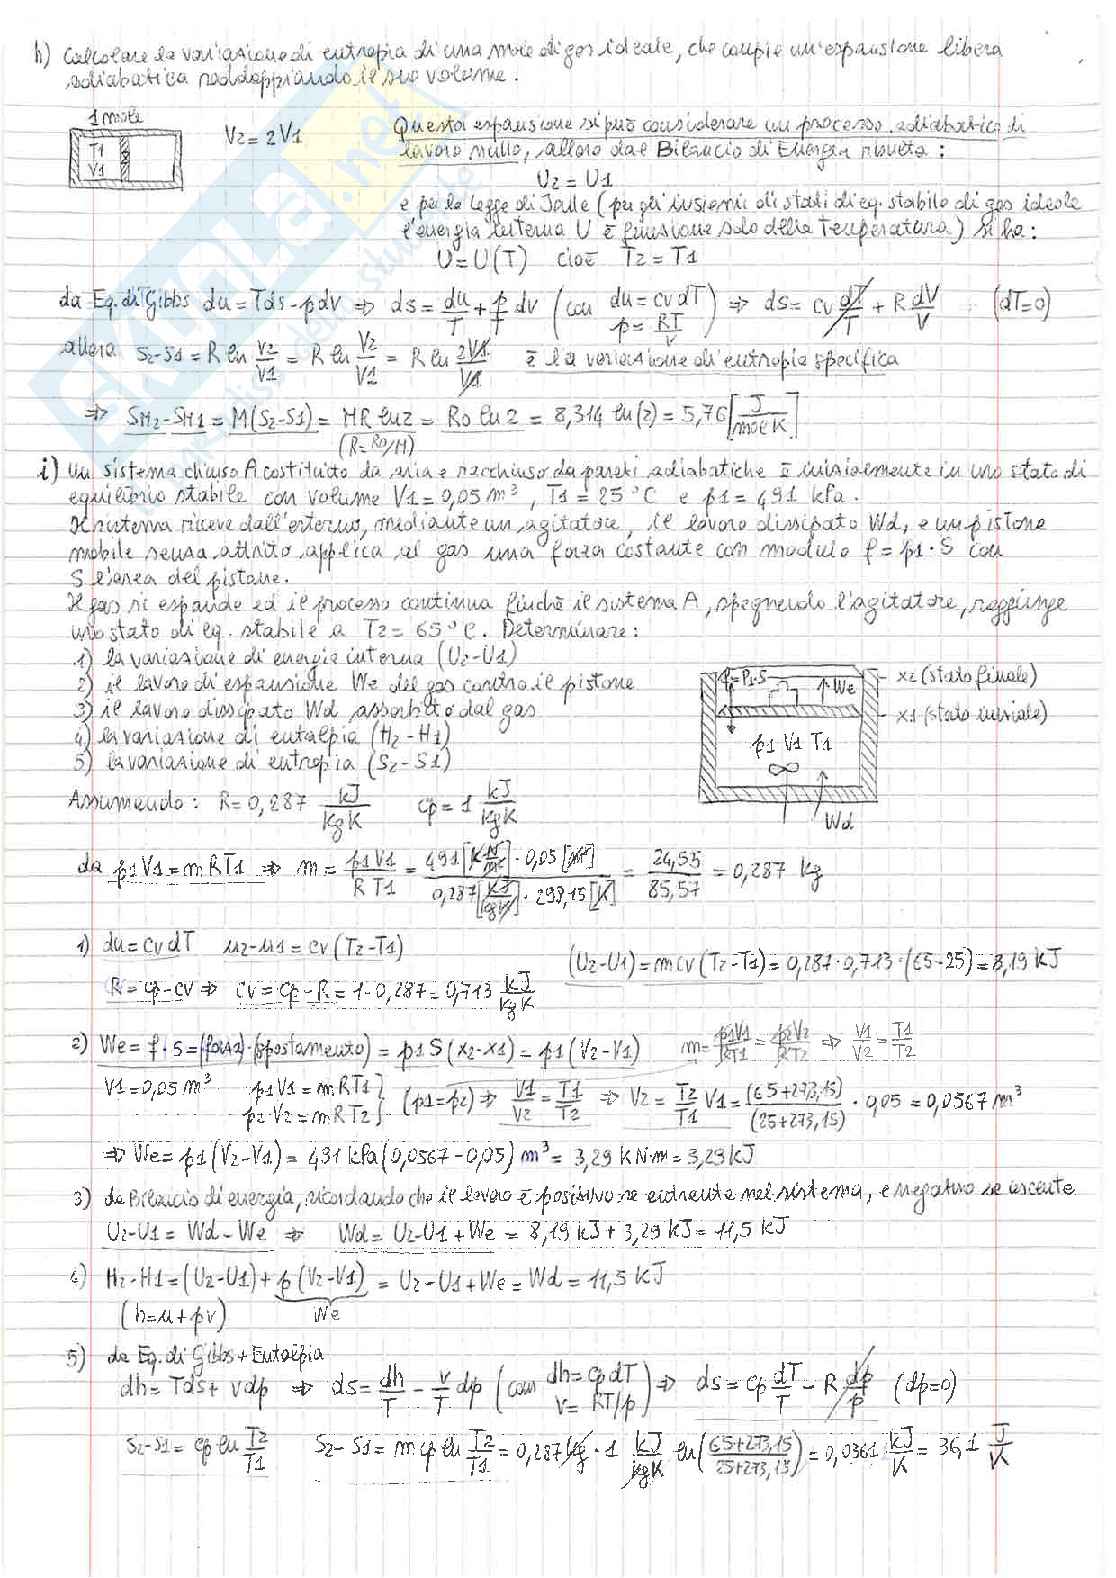 h) Calcolare la variazione di entropia di una mole di gas ideale, che compie un'espansione libera
adiabatica raddoppiando il suo volume.
1 mole
T1
V1
V2 = 2V1
Questa espansione si può considerare un processo adiabatico di
lavoro nullo, allora dal Bilancio di Energia risulta:
U2 = U1
e per la Legge di Joule (per gli insiemi di stati di eq. stabile di gas ideale
l'energia interna U è funzione solo della Temperatura) si ha:
U = U(T) cioè T2 = T1
da Eq. di Gibbs du = Tds - pdv ⇒ ds = du/T + p/T dv (con du = cv dT p = RT/v) ⇒ ds = cv dT/T + R dV/V (dT=0)
allora s2-s1 = R ln v2/v1 = R ln V2/V1 = R ln 2V1/V1 è la variazione di entropia specifica
⇒ SM2-SM1 = M(s2-s1) = MR ln2 = R0 ln 2 = 8,314 ln(2) = 5,76 [J/mol K]
(R = R0/M)
i) Un sistema chiuso A costituito da aria e racchiuso da pareti adiabatiche è inizialmente in uno stato di
equilibrio stabile con volume V1 = 0,05 m³, T1 = 25°C e p1 = 491 kPa.
Il sistema riceve dall'esterno, mediante un agitatore, il lavoro dissipato Wd, e un pistone
mobile senza attrito applica al gas una forza costante con modulo f = p1·S con
S l'area del pistone.
Il gas si espande ed il processo continua finchè il sistema A, spegnendo l'agitatore, raggiunge
uno stato di eq. stabile a T2 = 65°C. Determinare:
1) la variazione di energia interna (U2-U1)
2) il lavoro di espansione We del gas contro il pistone
3) il lavoro dissipato Wd assorbito dal gas
4) la variazione di entalpia (H2-H1)
5) la variazione di entropia (S2-S1)
f=P1·S
We
x2 (stato finale)
x1 (stato iniziale)
p1 V1 T1
Wd
Assumendo: R = 0,287 kJ/kg K cp = 1 kJ/kg K
da p1V1 = mRT1 ⇒ m = p1V1/RT1 = 491 [kN/m²] · 0,05 [m³] / 0,287 [kJ/kg K] · 298,15 [K] = 24,55/85,57 = 0,287 kg
1) du = cv dT u2-u1 = cv (T2-T1) (U2-U1) = m cv (T2-T1) = 0,287·0,713·(65-25) = 8,19 kJ
R = cp-cv ⇒ cv = cp-R = 1-0,287 = 0,713 kJ/kg K
2) We = f·s = (forza)·(spostamento) = p1S(x2-x1) = p1(V2-V1) m = p1V1/RT1 = p2V2/RT2 ⇒ V1/V2 = T1/T2
V1 = 0,05 m³ p1V1 = mRT1
p2V2 = mRT2} (p1=p2) ⇒ V1/V2 = T1/T2 ⇒ V2 = T2/T1 V1 = (65+273,15)/(25+273,15) · 0,05 = 0,0567 m³
⇒ We = p1(V2-V1) = 491 kPa (0,0567-0,05) m³ = 3,29 kN·m = 3,29 kJ
3) da Bilancio di energia, ricordando che il lavoro è positivo se entrante nel sistema, e negativo se uscente
U2-U1 = Wd-We ⇒ Wd = U2-U1+We = 8,19 kJ + 3,29 kJ = 11,5 kJ
4) H2-H1 = (U2-U1) + p(V2-V1) = U2-U1+We = Wd = 11,5 kJ
(h=u+pv) We
5) da Eq. di Gibbs + Entalpia
dh = Tds + vdp ⇒ ds = dh/T - v/T dp (con dh = cp dT v = RT/p) ⇒ ds = cp dT/T - R dp/p (dp=0)
s2-s1 = cp ln T2/T1 S2-S1 = m cp ln T2/T1 = 0,287 kg · 1 kJ/kg K ln(65+273,15/25+273,15) = 0,0361 kJ/K = 36,1 J/K